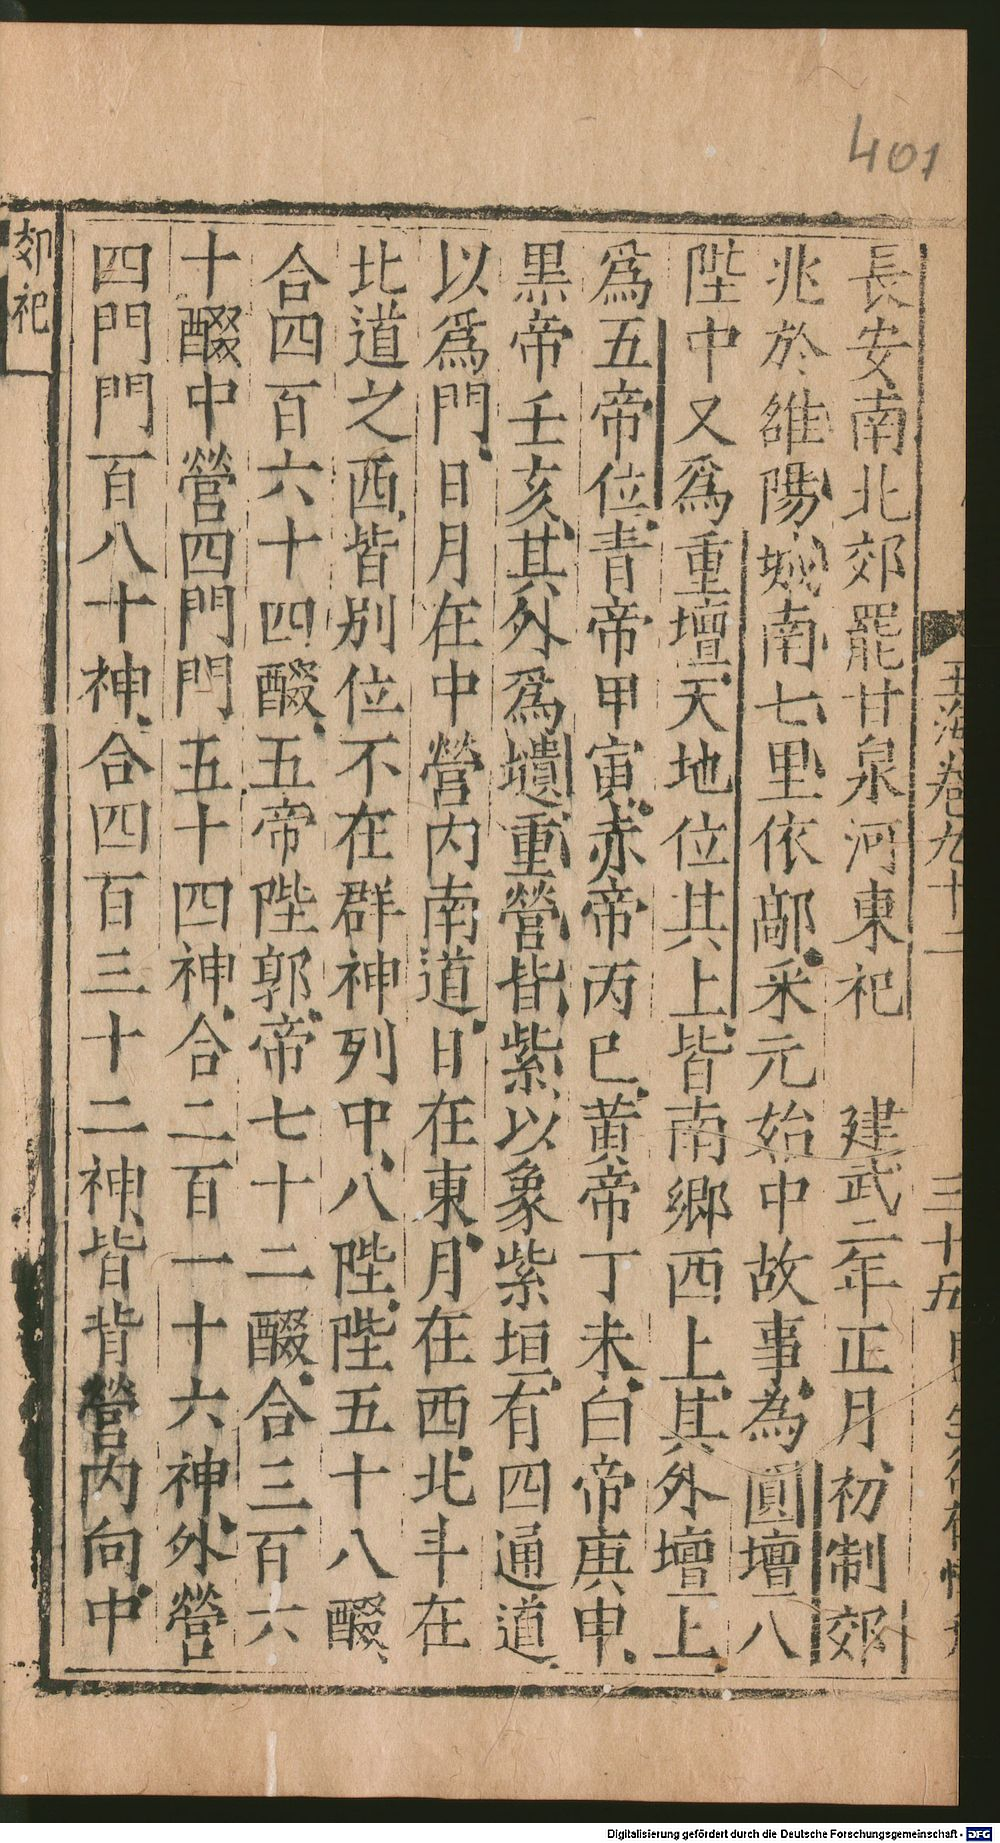 401
玉海卷九十二
三十五
長安南北郊罷甘泉河東祀　建武二年正月初制郊
兆於雒陽城南七里依鄗采元始中故事為圓壇八
陛中又爲重壇天地位其上皆南郷西上其外壇上
爲五帝位青帝甲寅赤帝丙巳黄帝丁未白帝庚申
黒帝壬亥其外爲壝重營皆紫以象紫垣有四通道
以爲門日月在中營内南道日在東月在西北斗在
北道之西皆别位不在群神列中八陛陛五十八醊
合四百六十四醊五帝陛郭帝七十二醊合三百六
十醊中營四門門五十四神合二百一十六神外營
四門門百八十神合四百三十二神皆背營内向中
郊祀
Digitalisierung gefördert durch die Deutsche Forschungsgemeinschaft - DFG